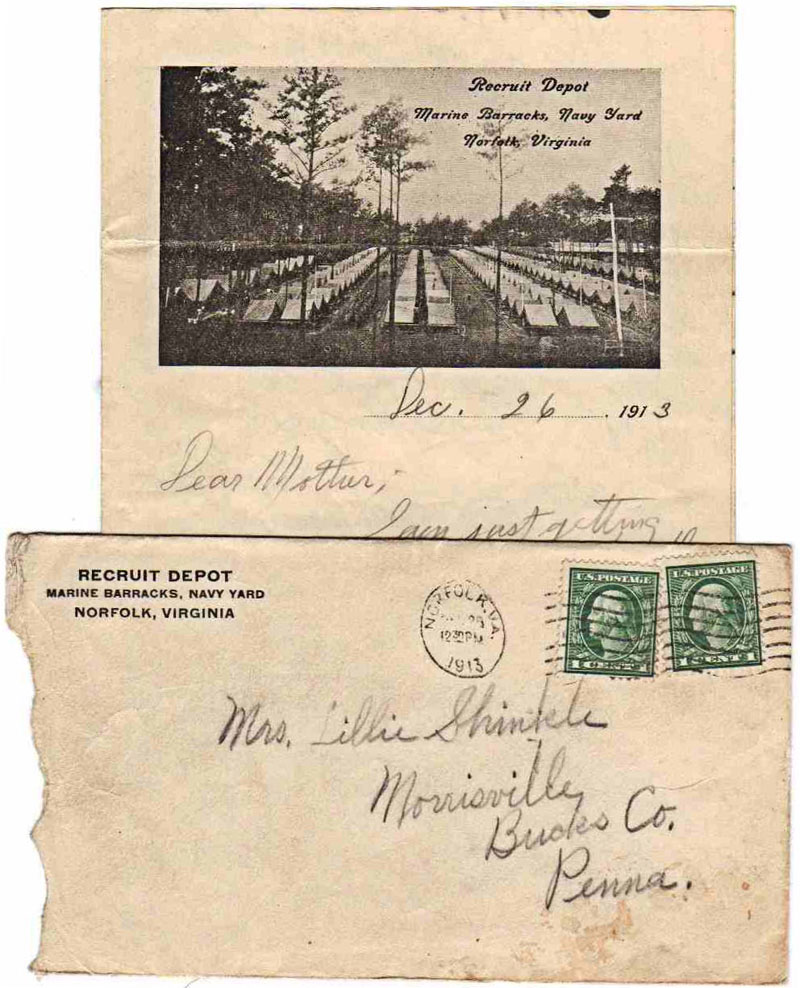 Recruit Depot
Marine Barracks, Navy Yard
Norfolk, Virginia
Dec. 26. 1913
Dear Mother,
I am just getting
RECRUIT DEPOT
MARINE BARRACKS, NAVY YARD
NORFOLK, VIRGINIA
NORFOLK, VA.
1230PM
1913
U.S. POSTAGE
1 CENT 1
U.S. POSTAGE
1 CENT 1
Mrs. Lillie Shinkle
Morrisville
Bucks Co.
Penna.